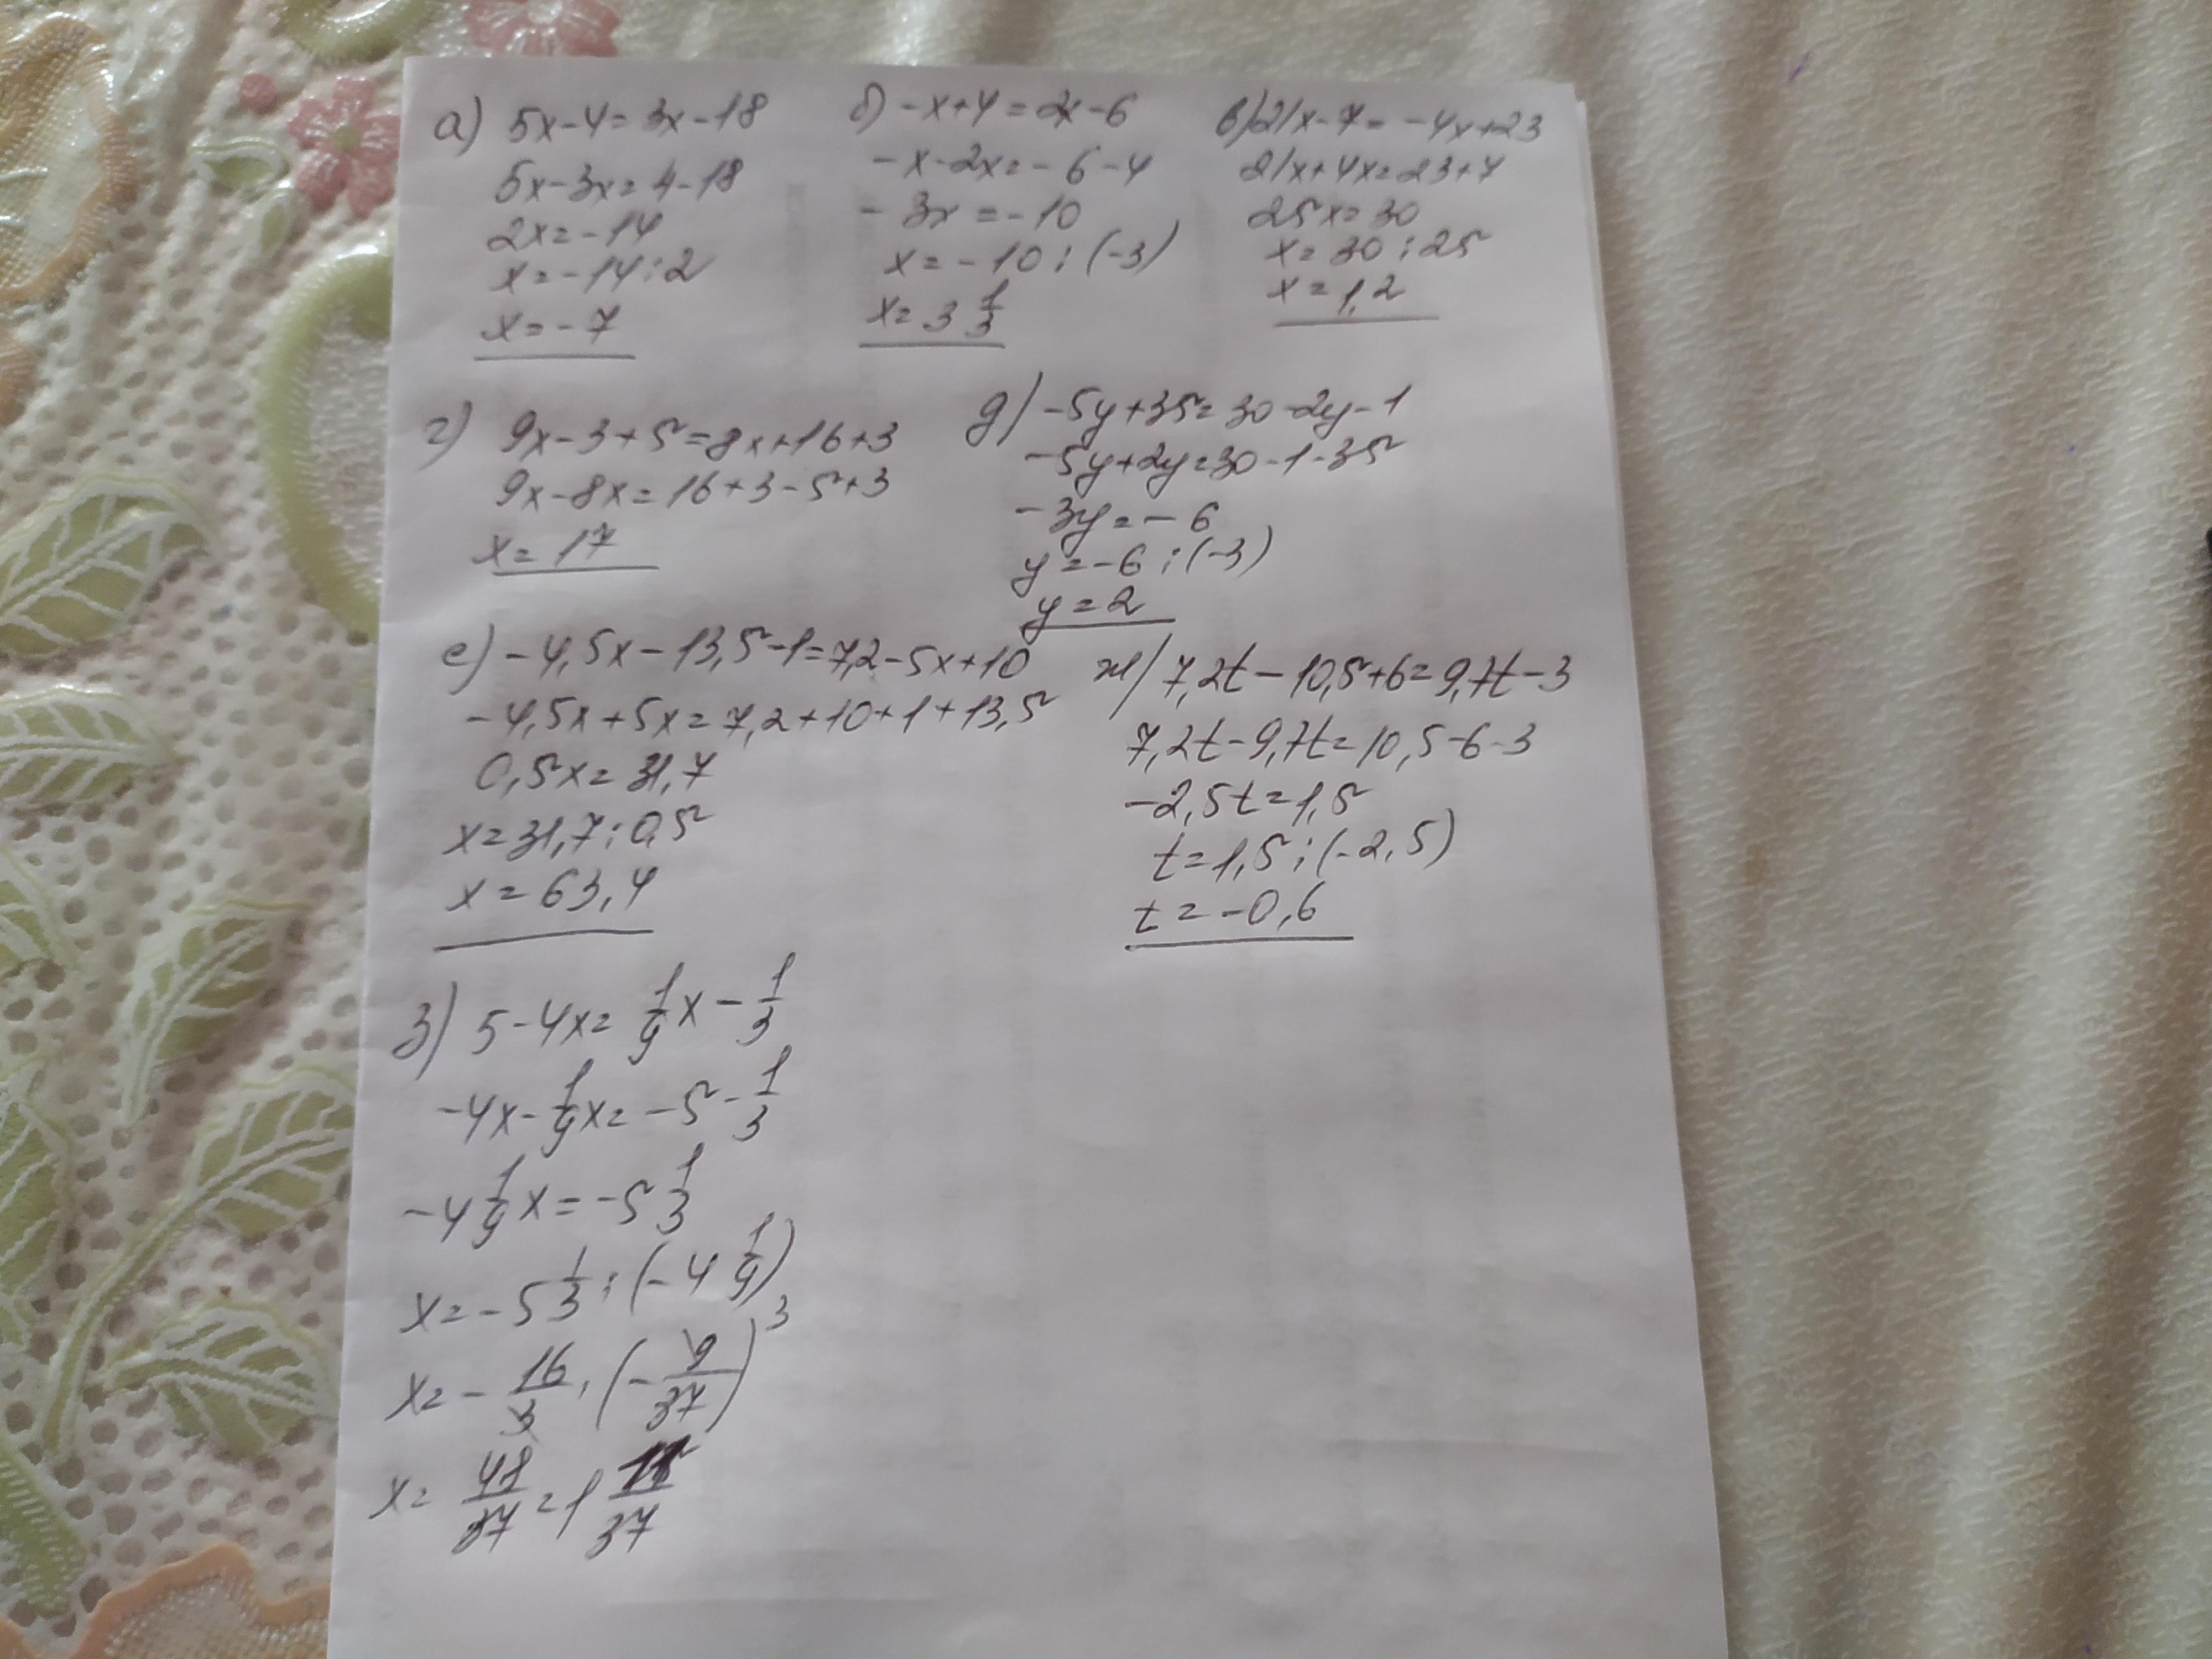 а) 5x-4=3x-18
5x-3x=4-18
2x=-14
x=-14:2
x=-7
б) -x+4=2x-6
-x-2x=-6-4
-3x=-10
x=-10:(-3)
x=3 1/3
в) 21x-7=-4x+23
21x+4x=23+7
25x=30
x=30:25
x=1,2
г) 9x-3+5=8x+16+3
9x-8x=16+3-5+3
x=17
д) -5y+35=30-2y-1
-5y+2y=30-1-35
-3y=-6
y=-6:(-3)
y=2
е) -4,5x-13,5-1=7,2-5x+10
-4,5x+5x=7,2+10+1+13,5
0,5x=31,7
x=31,7:0,5
x=63,4
ж) 7,2t-10,5+6=9,7t-3
7,2t-9,7t=10,5-6-3
-2,5t=1,5
t=1,5:(-2,5)
t=-0,6
з) 5-4x=1/9x-1/3
-4x-1/9x=-5-1/3
-4 1/9x=-5 1/3
x=-5 1/3:(-4 1/9)
x=-16/3·(-9/37) 3
x=48/37=1 11/37